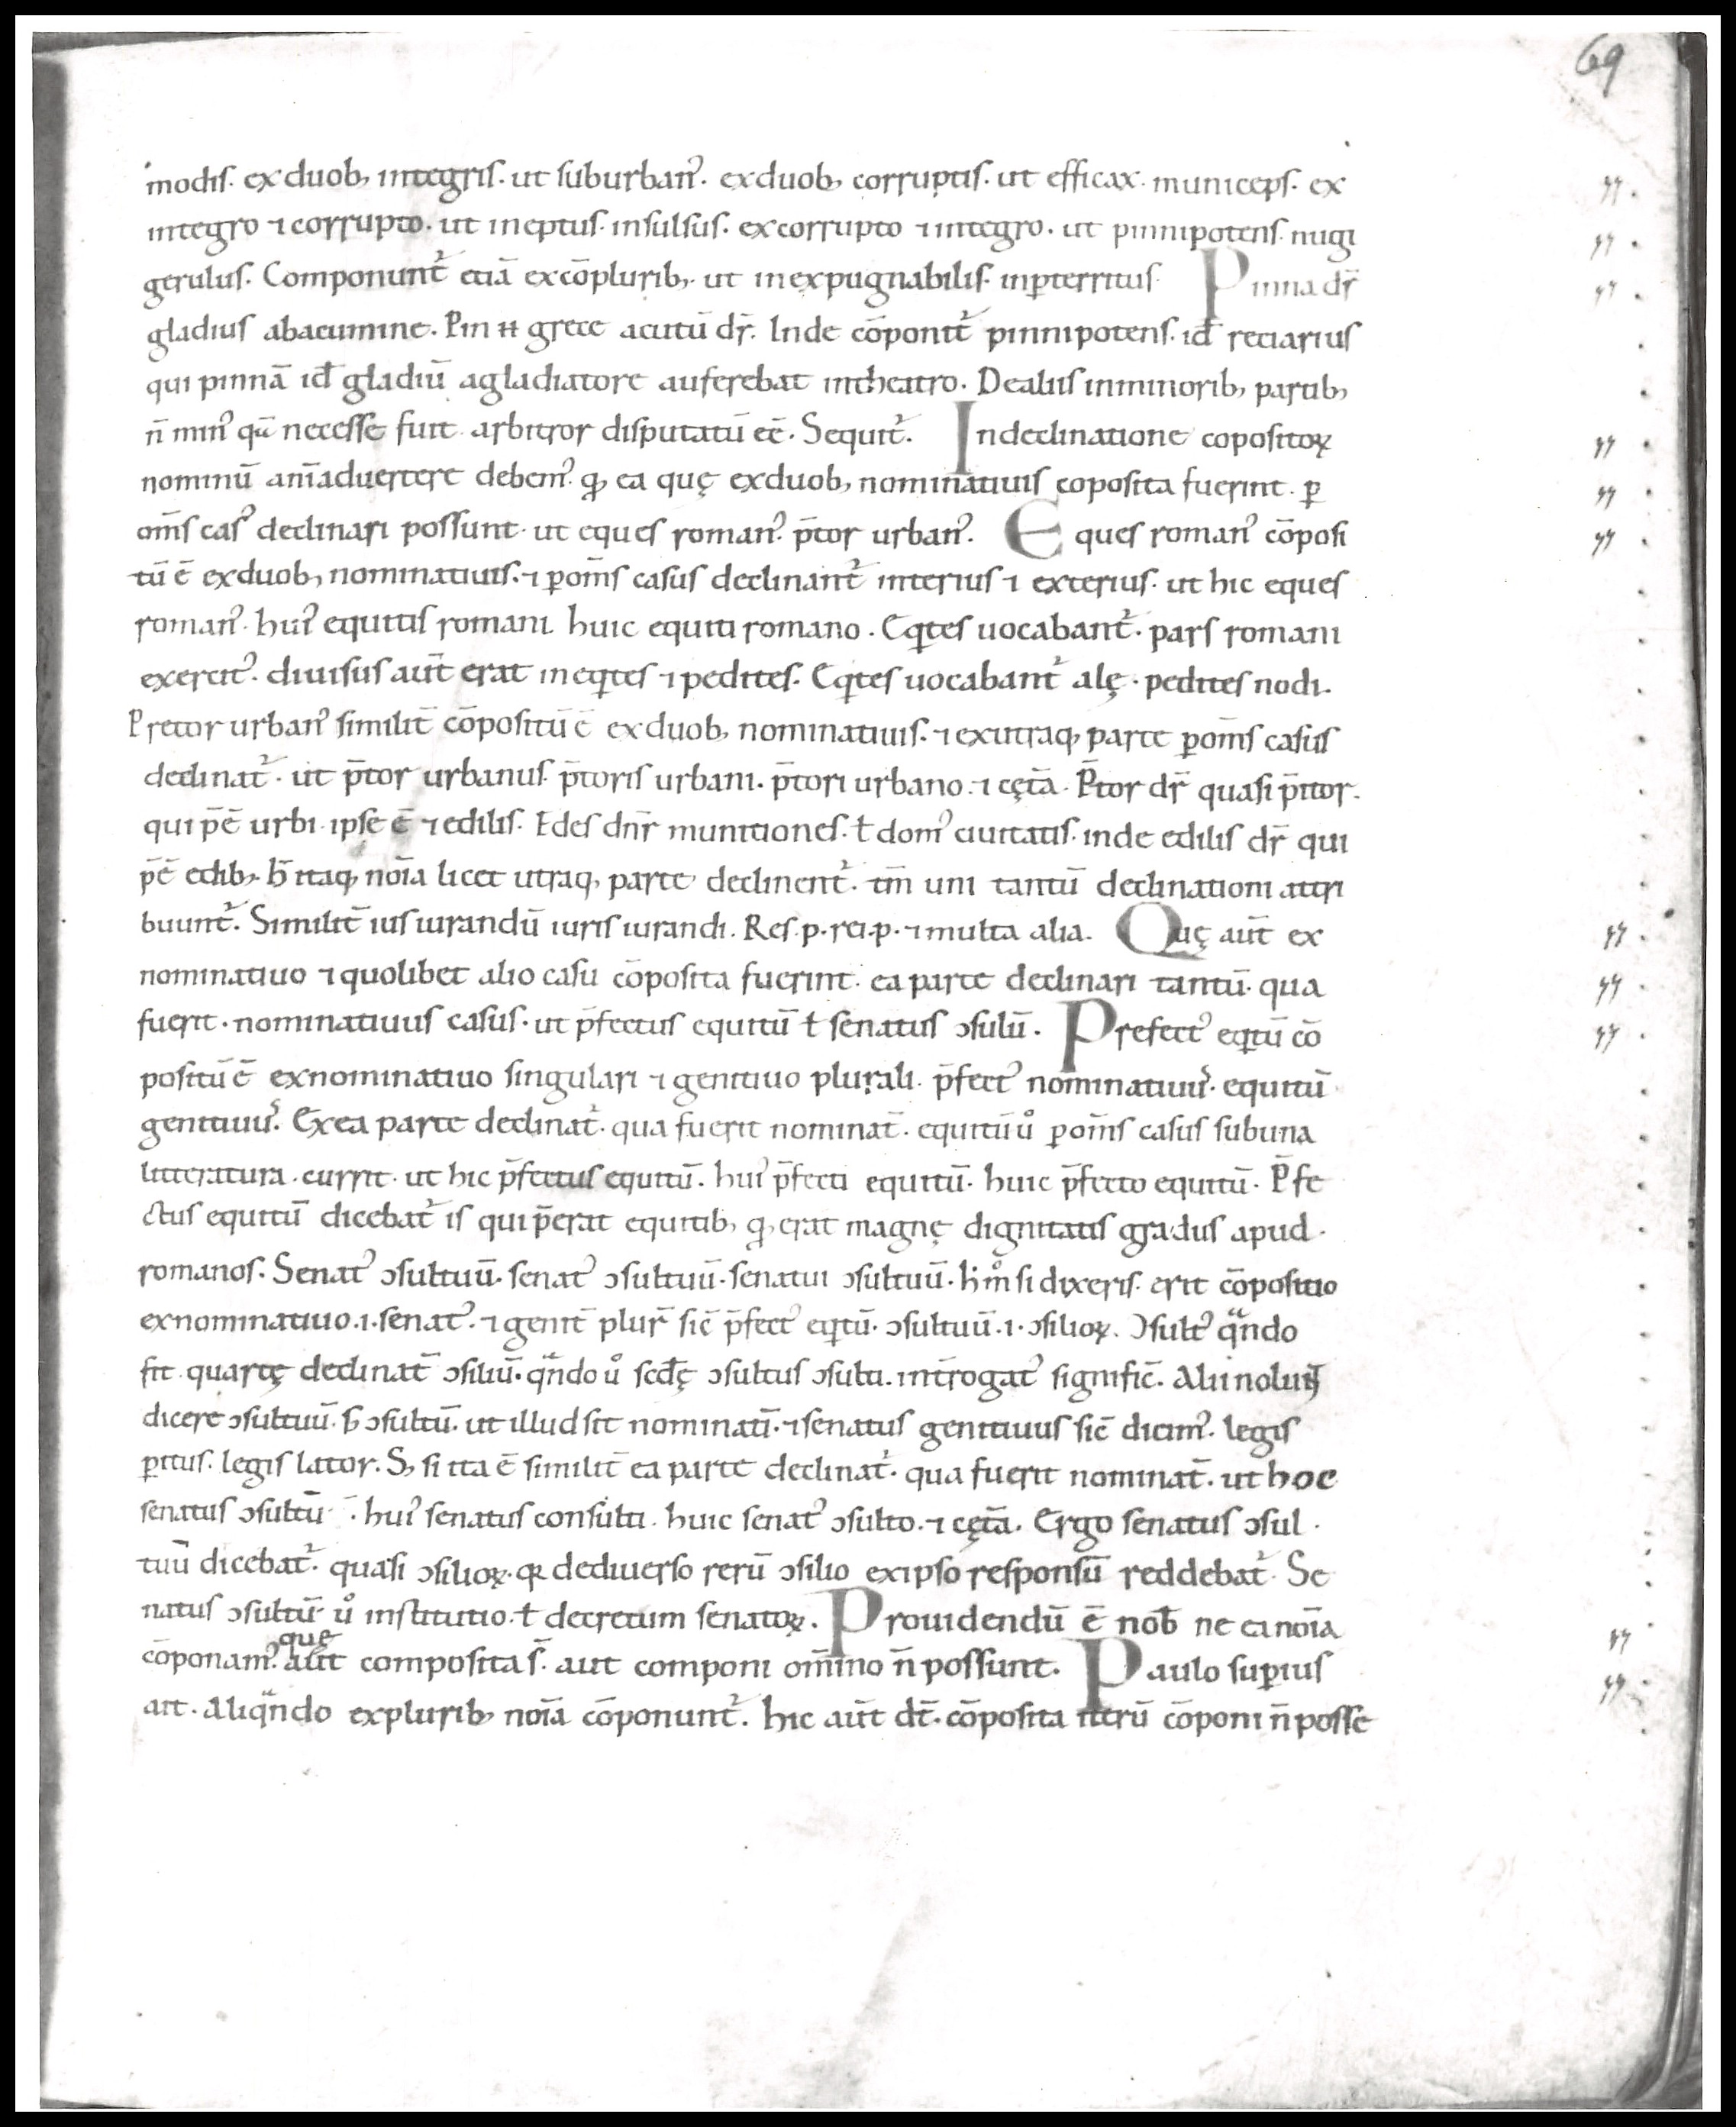 69
modis. ex duob; integris. ut suburban᾿. ex duob; corruptis. ut efficax. municeps. ex
integro ⁊ corrupto. ut ineptus. insulsus. ex corrupto ⁊ integro. ut pinnipotens. nugi
gerulus. Componunt᾿ etiā ex cōplurib;. ut inexpugnabilis. inꝑterritus. Pinna dr̄
gladius ab acumine. Pin grece acutū dr̄. Inde cōponit᾿ pinnipotens. id̄ retiarius
qui pinnā id̄ gladiū a gladiatore auferebat in theatro. De aliis in minorib; partib;
n̄ min᾿ quā necesse fuit arbitror disputatū eē. Sequit᾿. In declinatione copositoꝝ
nominū anīaduertere debem᾿. qđ ea quę ex duob; nominatiuis coposita fuerint. ꝑ
om̄s cas᾿ declinari possunt. ut eques roman᾿. p̄tor urban᾿. Eques roman᾿ cōposi
tū ē ex duob; nominatiuis. ⁊ ꝑ om̄s casus declinant᾿ interius ⁊ exterius. ut hic eques
roman᾿. hui᾿ equitis romani. huic equiti romano. Eqⁱtes uocabant᾿. pars romani
exercit᾿. diuisus aut̄ erat in eqⁱtes ⁊ pedites. Eqⁱtes uocabant᾿ alę. pedites nodi.
Pretor urban᾿ similit̄ cōpositū ē ex duob; nominatiuis. ⁊ ex utraq; parte ꝑ om̄s casus
declinat᾿. ut p̄tor urbanus. p̄toris urbani. p̄tori urbano. ⁊ cęt̄a. P̄tor dr̄ quasi p̄itor.
qui p̄ē urbi. ipse ē ⁊ edilis. Edes dn̄r munitiones. ł dom᾿ ciuitatis. inde edilis dr̄ qui
p̄ē edib;. h̄ itaq; noīa licet utraq; parte declinent᾿. tm̄ uni tantū declinationi attri
buunt᾿. Similit̄ ius iurandū iuris iurandi. Res.p. rei.p. ⁊ multa alia. Quę aut̄ ex
nominatiuo ⁊ quolibet alio casu cōposita fuerint. ea parte declinari tantū. qua
fuerit. nominatiuus casus. ut p̄fectus equitū ł senatus ɔsulū. Prefect᾿ eqⁱtū cō
positū ē ex nominatiuo singulari ⁊ genitiuo plurali. p̄fect᾿ nominatiuu᾿. equitū
genitiuu᾿. Ex ea parte declinat᾿. qua fuerit nominat̄. equitū uͦ ꝑ om̄s casus sub una
litteratura. currit. ut hic p̄fectus equitū. hui᾿ p̄fecti equitū. huic p̄fecto equitū. P̄fe
ctus equitū dicebat᾿ is qui p̄erat equitib; qđ erat magnę dignitatis gradus apud
romanos. Senat᾿ ɔsultuū. senat᾿ ɔsultuū. senatui ɔsultuū. h̄ mͦ si dixeris. erit cōpositio
ex nominatiuo .i. senat᾿. ⁊ genit̄ plur̄ sic̄ p̄fect᾿ eqⁱtū. ɔsultuū .i. ɔsilioꝝ. Ɔsult᾿ qᵃndo
fit quartę declinat̄ ɔsiliū. qᵃndo uͦ scd̄ę ɔsultus ɔsulti. int̄rogat᾿ signific̄. Alii nolunt
dicere ɔsultuū. s; ɔsultū. ut illud sit nominatī. ⁊ senatus genitiuus sic̄ dicim᾿. legis
ꝑitus. legis lator. S; si ita ē similit̄ ea parte declinat᾿. qua fuerit nominat̄. ut hoc
senatus ɔsultū. hui᾿ senatus consulti. huic senat᾿ ɔsulto. ⁊ cęt̄a. Ergo senatus ɔsul
tuū dicebat᾿. quasi ɔsilioꝝ. qꝛ de diuerso rerū ɔsilio ex ipso responsū reddebat᾿. Se
natus ɔsultū uͦ institutio. ł decretum senatoꝝ. Prouidendū ē nob̄ ne ea noīa
cōponam᾿. que aut composita s̄. aut componi om̄ino n̄ possunt. Paulo suꝑius
ait. Aliqᵃndo ex plurib; noīa cōponunt᾿. hic aut̄ dt̄. cōposita iterū cōponi n̄ posse